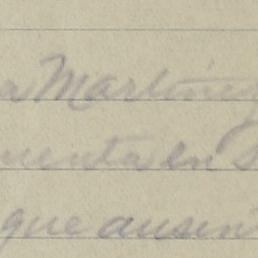 a Martinez
uenta en s
que ausen